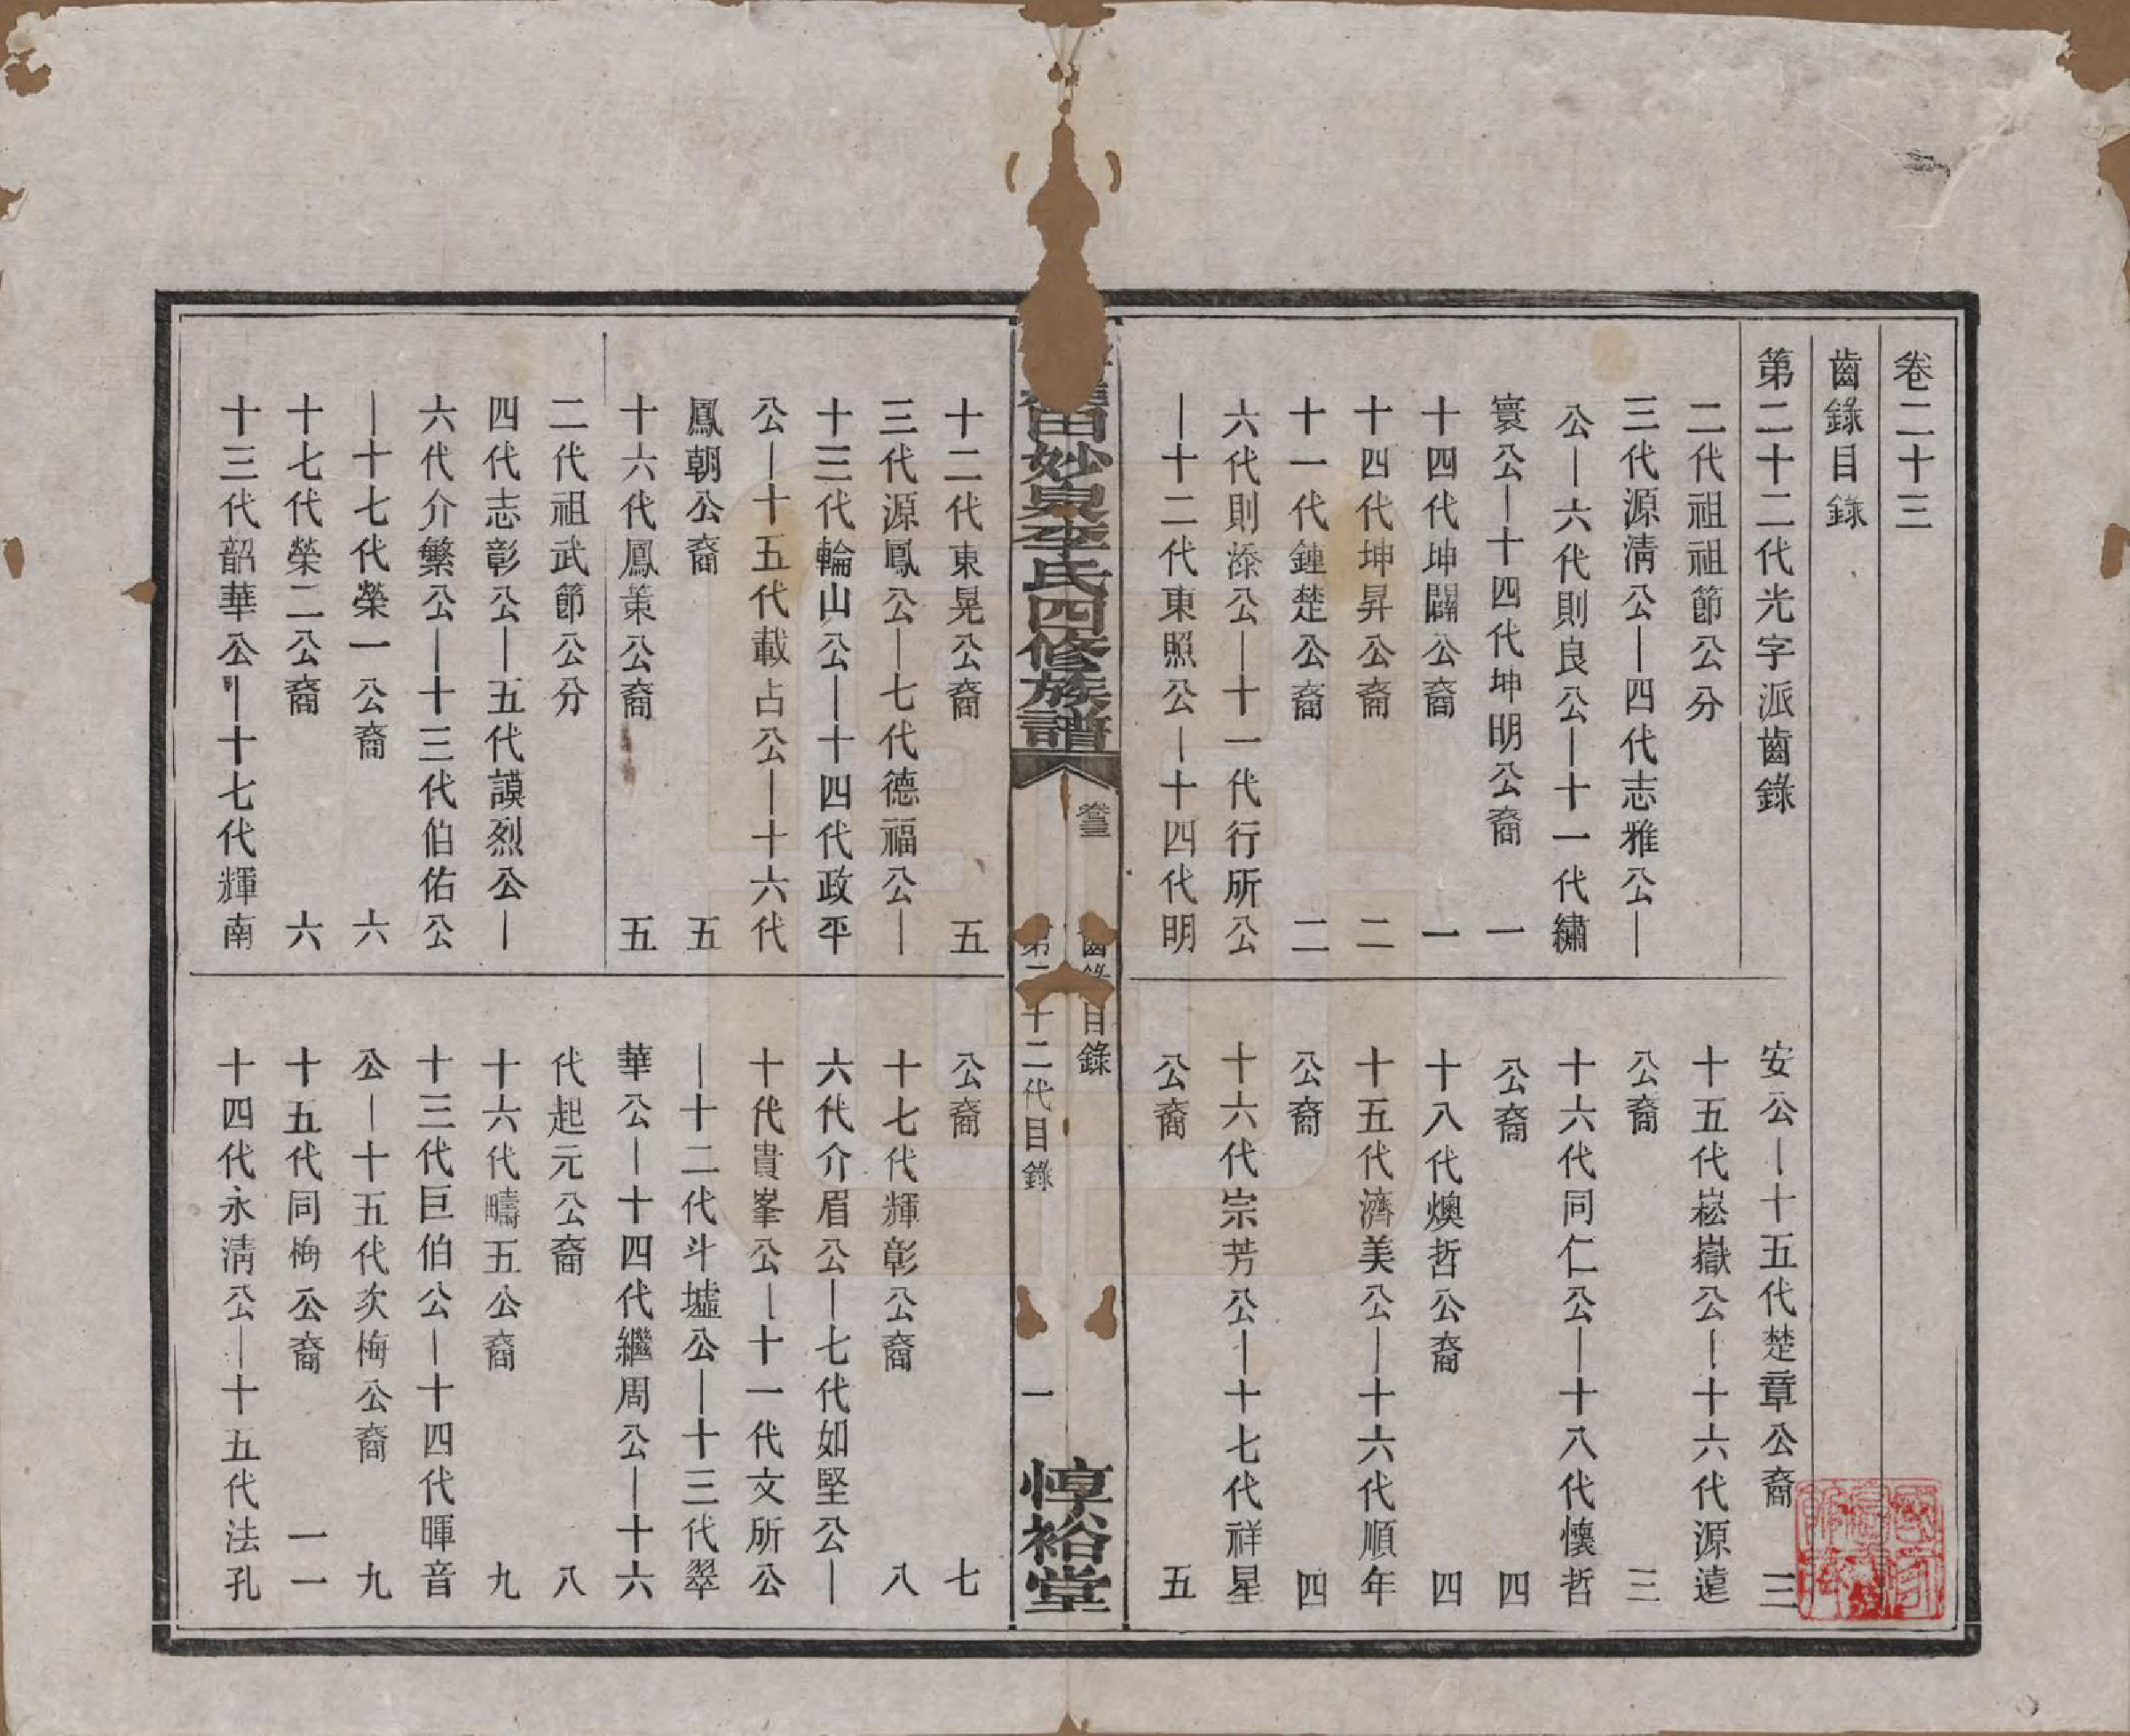 卷二十三
齒錄目錄
第二十二代光字派齒錄
二代祖祖節公分
三代源淸公—四代志雅公—
公—六代則良公—十一代繡
寰公—十四代坤明公裔 一
十四代坤闢公裔 一
十四代坤昇公裔 二
十一代鍾楚公裔 二
六代則漆公—十一代行所公
—十二代東照公—十四代明
安公—十五代楚章公裔 三
十五代崧嶽公—十六代源遠
公裔 三
十六代同仁公—十八代懷哲
公裔 四
十八代燠哲公裔 四
十五代濟美公—十六代順年
公裔 四
十六代宗芳公—十七代祥星
公裔 五
田妙泉李氏四修族譜
卷二十三
齒錄目錄
第二十二代目錄
一
惇裕堂
十二代東晃公裔 五
三代源鳳公—七代德福公—
十三代輪山公—十四代政平
公—十五代載占公—十六代
鳳朝公裔 五
十六代鳳策公裔 五
二代祖武節公分
四代志彰公—五代謨烈公—
六代介繁公—十三代伯佑公
—十七代榮一公裔 六
十七代榮二公裔 六
十三代韶華公—十七代輝南
公裔 七
十七代輝彰公裔 八
六代介眉公—七代如堅公—
十代貴峯公—十一代文所公
—十二代斗墟公—十三代翠
華公—十四代繼周公—十六
代起元公裔 八
十六代疇五公裔 九
十三代巨伯公—十四代暉音
公—十五代次梅公裔 九
十五代同梅公裔 一一
十四代永淸公—十五代法孔